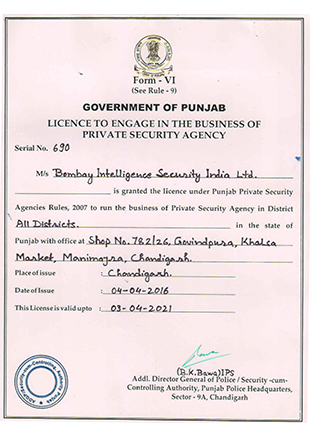 Form - VI
(See Rule - 9)
GOVERNMENT OF PUNJAB
LICENCE TO ENGAGE IN THE BUSINESS OF
PRIVATE SECURITY AGENCY
Serial No. 690
M/s Bombay Intelligence Security India Ltd.
is granted the licence under Punjab Private Security
Agencies Rules, 2007 to run the business of Private Security Agency in District
All Districts. in the state of
Punjab with office at Shop No. 782/26, Govindpura, Khalsa
Market, Manimajra, Chandigarh.
Place of issue : Chandigarh.
Date of Issue : 04-04-2016
This License is valid upto : 03-04-2021
(B.K. Bawa) IPS
Addl. Director General of Police / Security -cum-
Controlling Authority, Punjab Police Headquarters,
Sector - 9A, Chandigarh